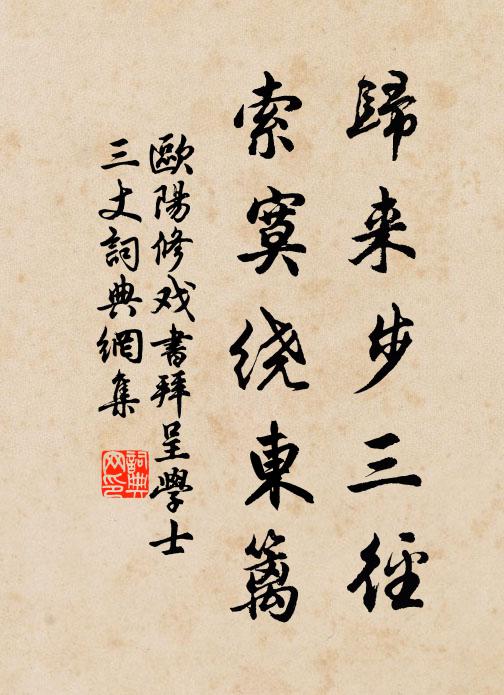 歸来步三径
索寞绕東篱
歐陽修戏書拜呈學士
三丈詞典網集
詞典网印